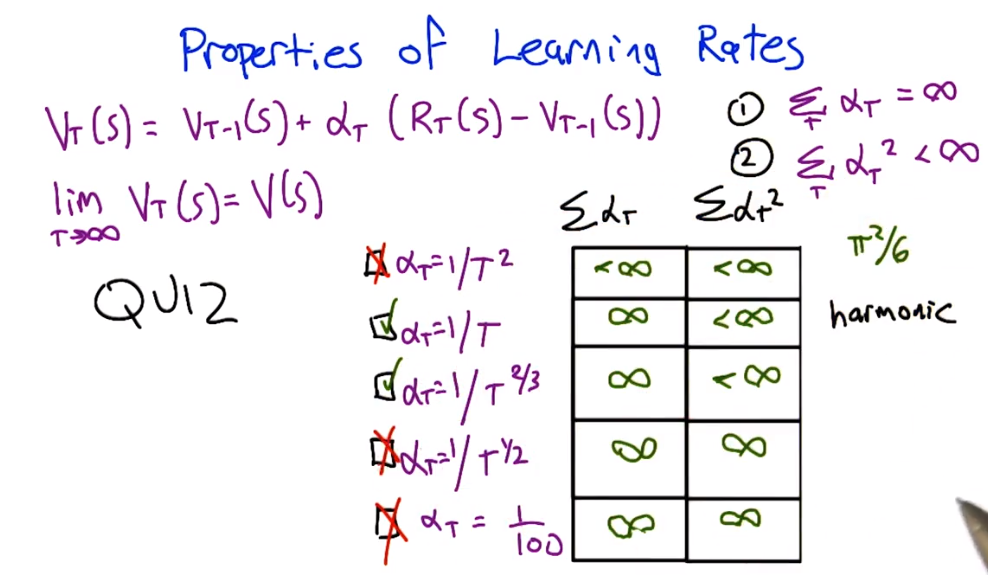 Properties of Learning Rates
V_T(s) = V_{T-1}(s) + α_T (R_T(s) - V_{T-1}(s))
① Σ_T α_T = ∞
② Σ_T α_T² < ∞
lim_{T→∞} V_T(s) = V(s)
Σα_T Σα_T²
QUIZ
α_T = 1/T² <∞ <∞ π²/6
α_T = 1/T ∞ <∞ harmonic
α_T = 1/T^{2/3} ∞ <∞
α_T = 1/T^{1/2} ∞ ∞
α_T = 1/100 ∞ ∞